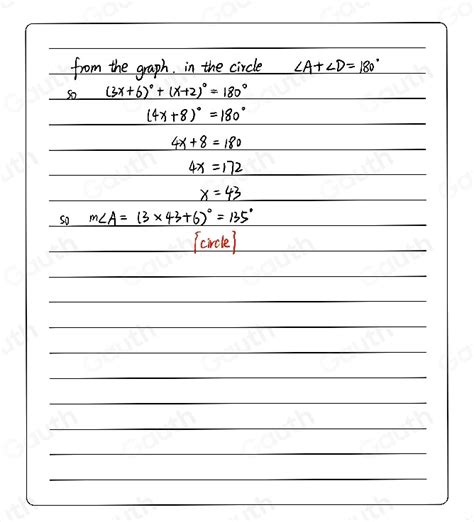 from the graph. in the circle ∠A+∠D=180°
so (3x+6)°+(x+2)°=180°
(4x+8)°=180°
4x+8=180
4x=172
x=43
so m∠A=(3×43+6)°=135°
{circle}